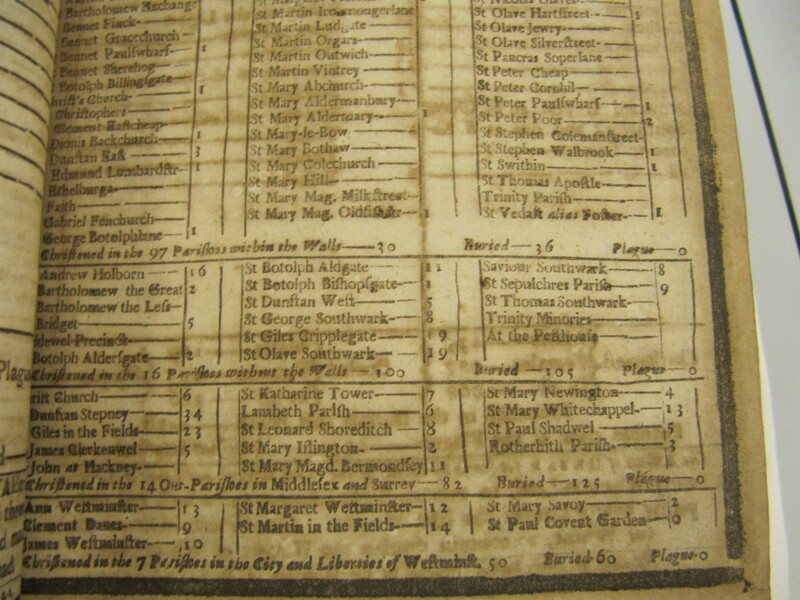 Bartholomew Exchange
Bennet Finck
Bennet Gracechurch
Bennet Paulſwharf— 1
Bennet Sherehog
Botolph Billingſgate
Chriſt's Church— 1
Chriſtophers
Clement Eaſtcheap
Dionis Backchurch— 1
Dunſtan Eaſt— 3
Edmund Lombardſtr— 1
Ethelburga
Faith
Gabriel Fenchurch
George Botolphlane— 1
St Martin Ironmongerlane
St Martin Ludgate
St Martin Orgars
St Martin Outwich
St Martin Vintrey
St Mary Abchurch
St Mary Aldermanbury
St Mary Aldermary— 1
St Mary-le-Bow
St Mary Bothaw
St Mary Colechurch
St Mary Hill
St Mary Mag. Milkſtreet
St Mary Mag. Oldfiſhſtr— 1
St Olave Hartſtreet— 1
St Olave Jewry
St Olave Silverſtreet
St Pancras Soperlane
St Peter Cheap
St Peter Cornhil
St Peter Paulſwharf— 1
St Peter Poor— 2
St Stephen Colemanſtreet
St Stephen Walbrook— 1
St Swithin— 1
St Thomas Apoſtle
Trinity Pariſh
St Vedaſt alias Foſter— 1
Chriſtened in the 97 Pariſhes within the Walls— 30 Buried— 36 Plague— 0
Andrew Holborn— 16
Bartholomew the Great 2
Bartholomew the Leſs
Bridget— 5
Bridewel Precinct
Botolph Alderſgate— 2
St Botolph Aldgate— 11
St Botolph Biſhopſgate— 1
St Dunſtan Weſt— 5
St George Southwark— 8
St Giles Cripplegate— 9
St Olave Southwark— 19
Saviour Southwark— 8
St Sepulchres Pariſh— 9
St Thomas Southwark
Trinity Minories
At the Peſthouſe
Chriſtened in the 16 Pariſhes without the Walls— 100 Buried— 105 Plague 0
Chriſt Church— 6
Dunſtan Stepney— 34
Giles in the Fields— 23
James Clerkenwel— 5
John at Hackney
St Katharine Tower— 7
Lambeth Pariſh— 6
St Leonard Shoreditch— 8
St Mary Iſlington— 2
St Mary Magd. Bermondſey 11
St Mary Newington— 4
St Mary Whitechappel— 13
St Paul Shadwel— 5
Rotherhith Pariſh— 3
Chriſtened in the 14 Out-Pariſhes in Middleſex and Surrey— 82 Buried— 125 Plague— 0
Ann Weſtminſter— 13
Clement Danes— 9
James Weſtminſter— 10
St Margaret Weſtminſter— 12
St Martin in the Fields— 14
St Mary Savoy— 2
St Paul Covent Garden— 0
Chriſtened in the 7 Pariſhes in the City and Liberties of Weſtminſt. 50 Buried— 60 Plague— 0